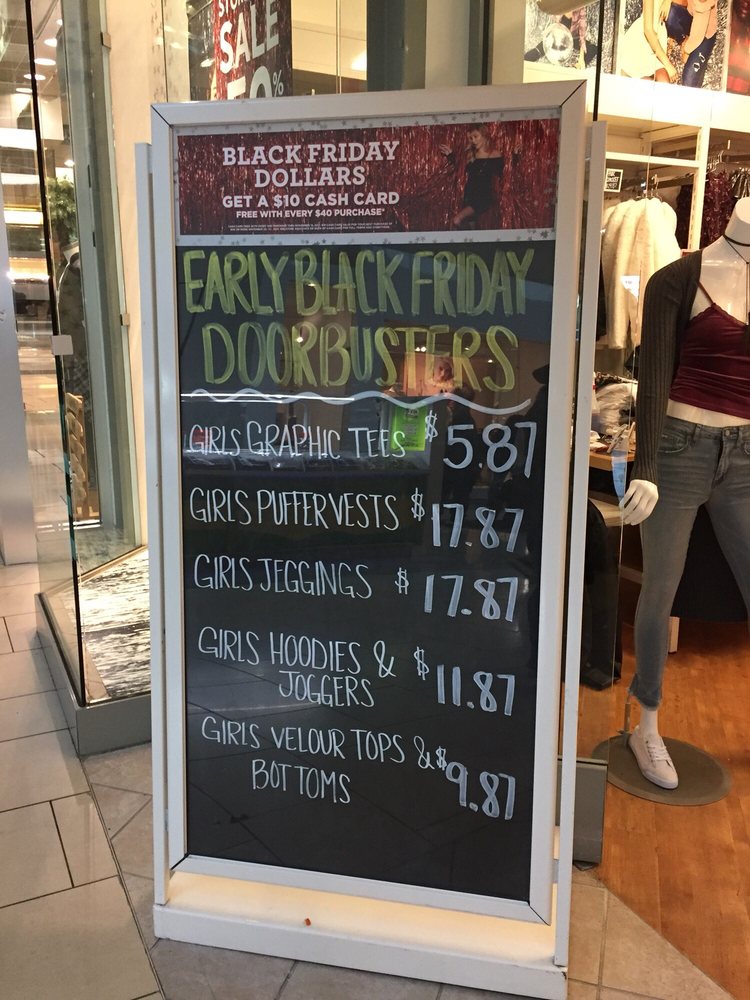 SALE
50%
BLACK FRIDAY
DOLLARS
GET A $10 CASH CARD
FREE WITH EVERY $40 PURCHASE*
EARLY BLACK FRIDAY
DOORBUSTERS
GIRLS GRAPHIC TEES $5.87
GIRLS PUFFER VESTS $17.87
GIRLS JEGGINGS $17.87
GIRLS HOODIES & JOGGERS $11.87
GIRLS VELOUR TOPS & BOTTOMS $9.87